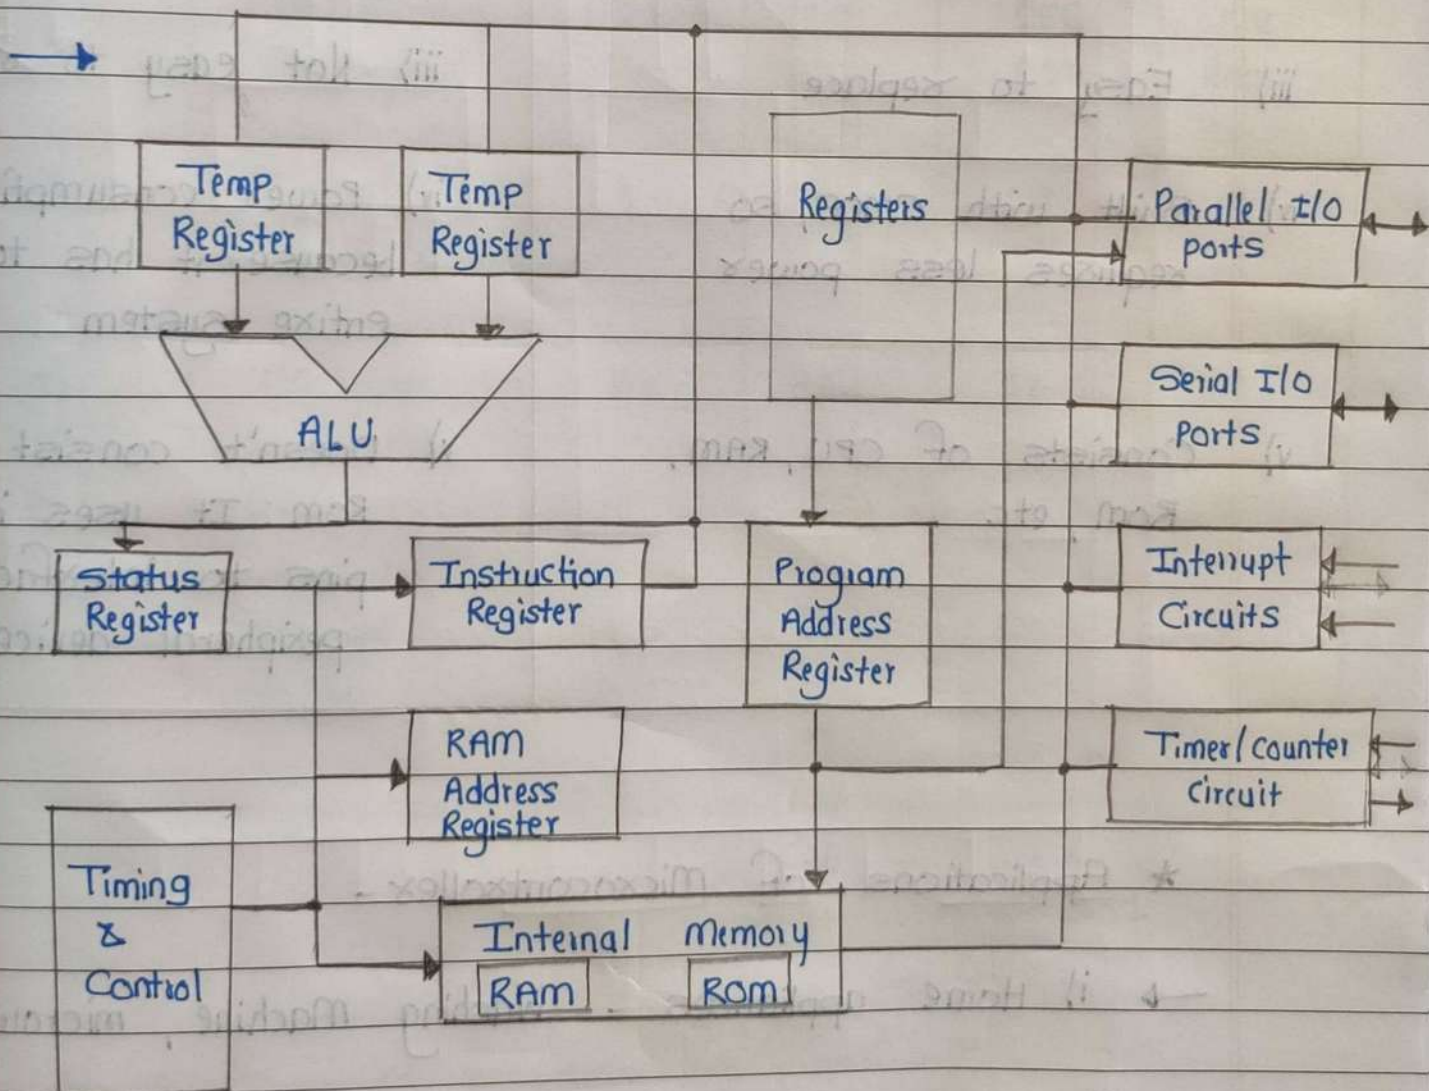 Temp
Register
Temp
Register
Registers
Parallel I/O
Ports
Serial I/O
Ports
ALU
Status
Register
Instruction
Register
Program
Address
Register
Interrupt
Circuits
RAM
Address
Register
Timer/counter
circuit
Timing
&
Control
Internal Memory
RAM ROM